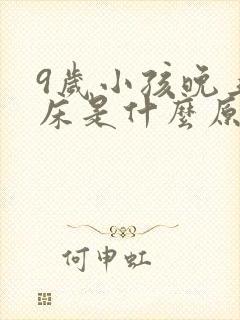 9歲小孩晚
床是什麼原
何申虹